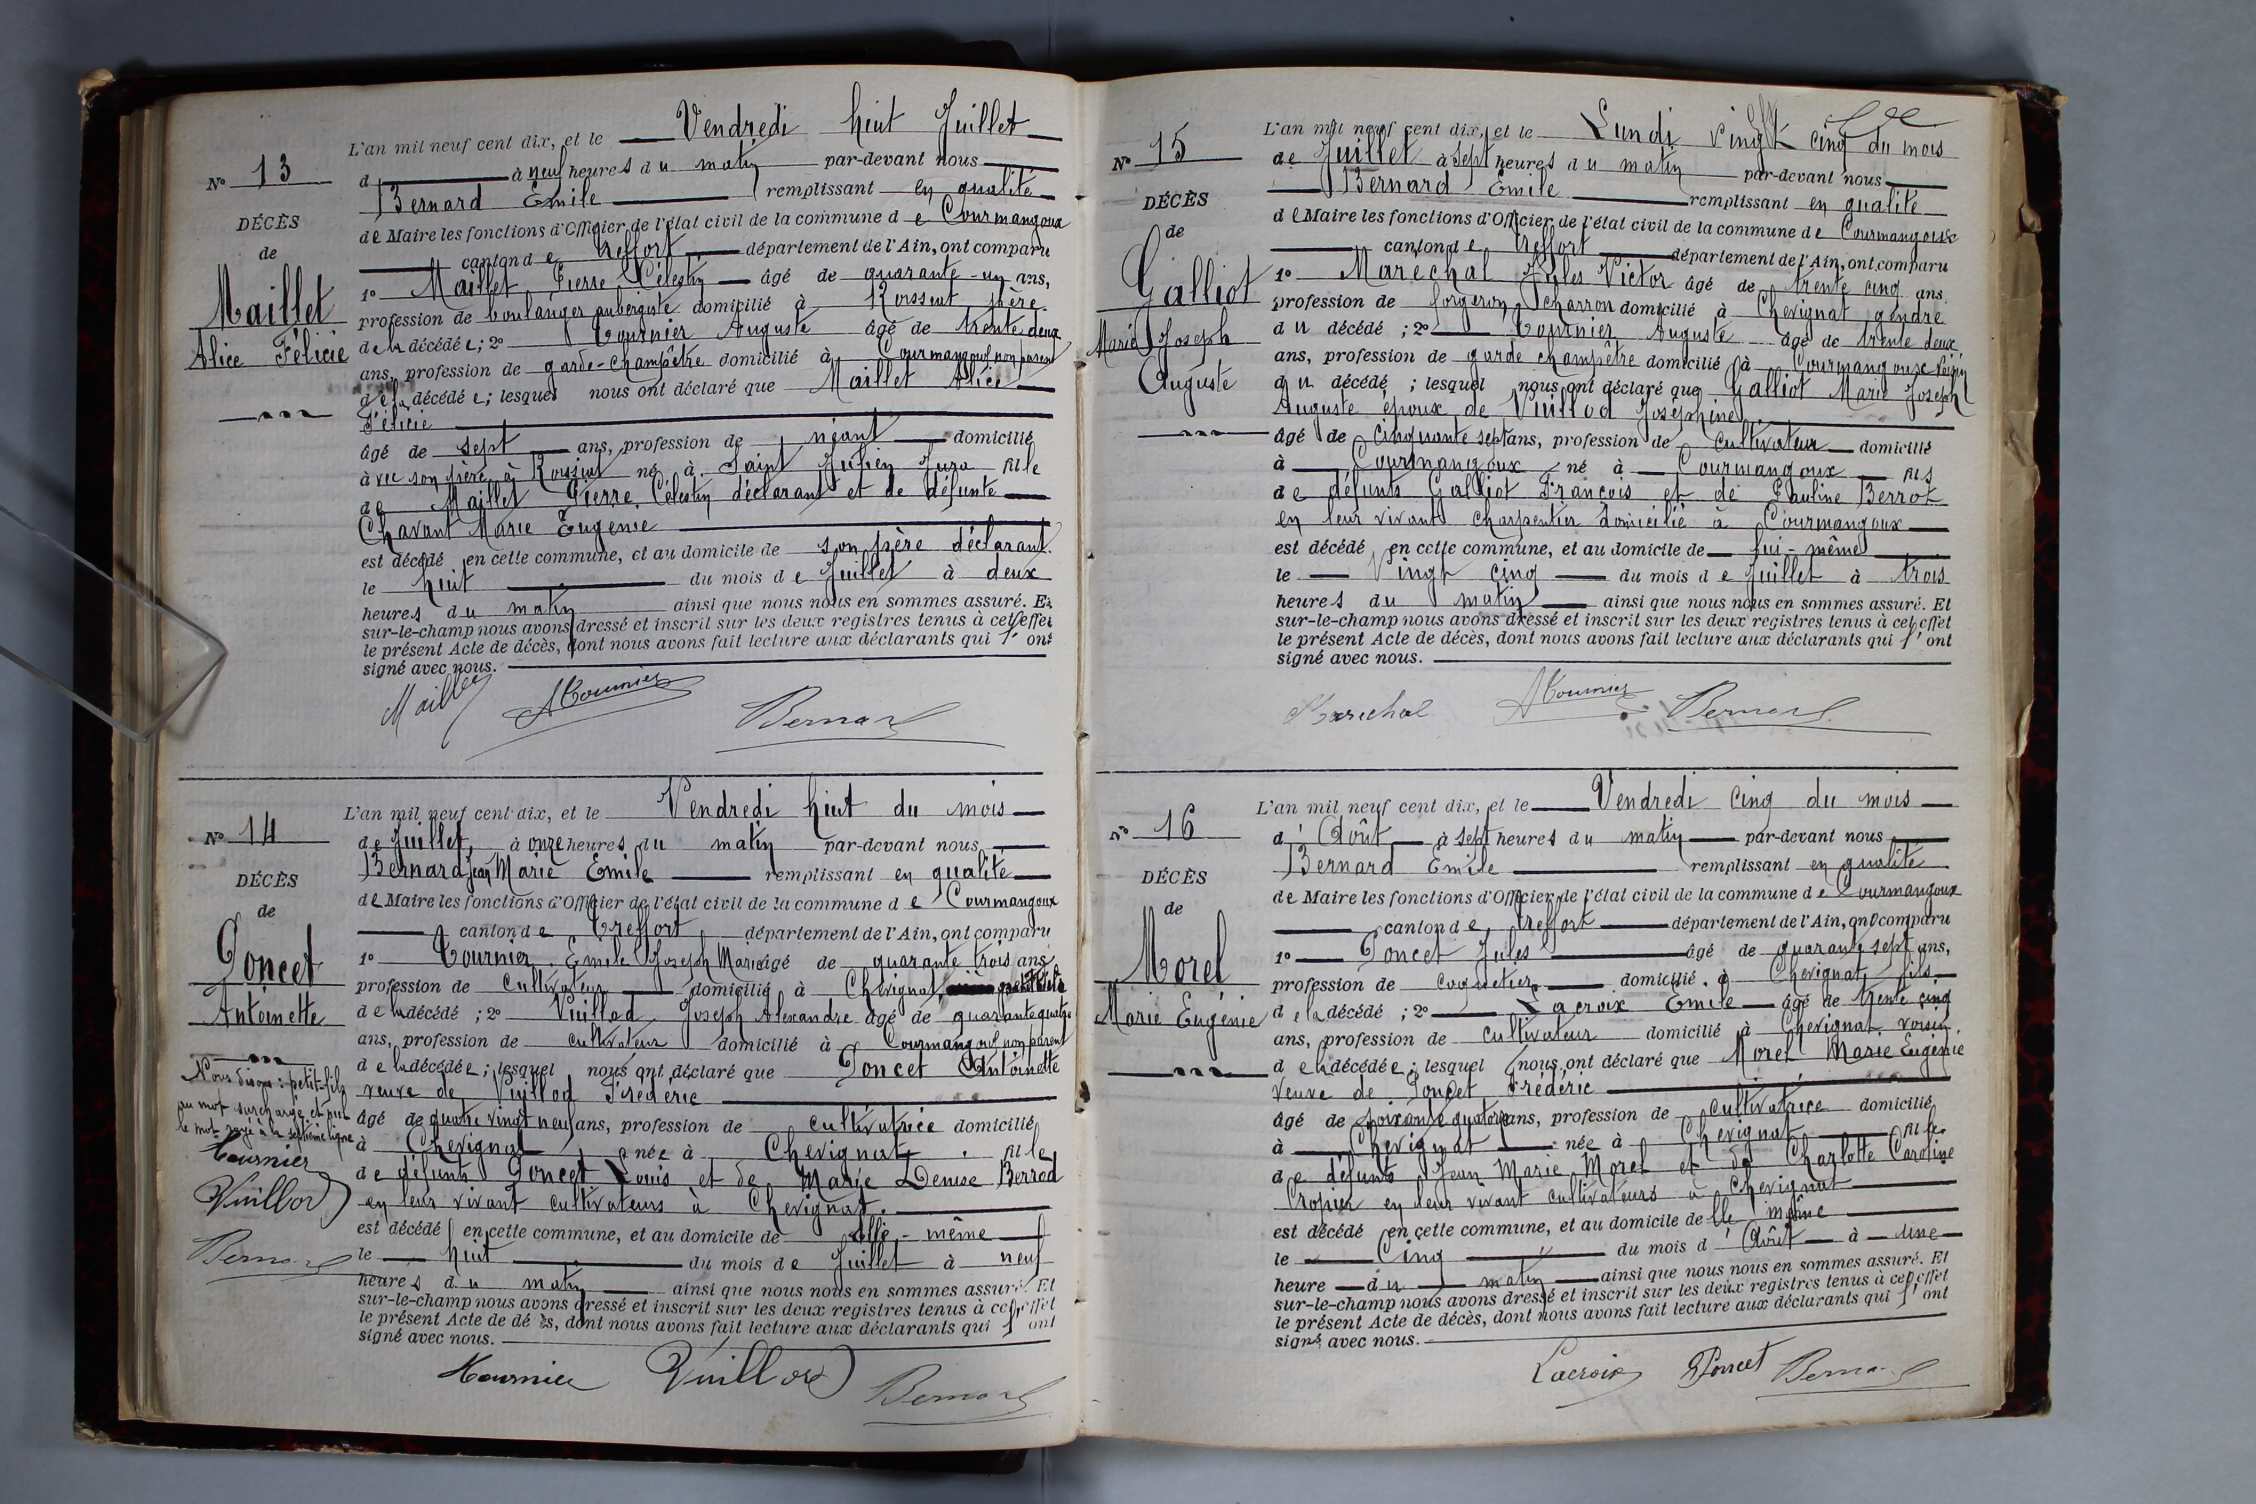 L'an mil neuf cent dix, et le Vendredi huit Juillet
N° 13
d à neuf heures du matin par-devant nous
Bernard Emile remplissant en qualité
DÉCÈS
de Maire les fonctions d'Officier de l'état civil de la commune de Courmangoux
de
canton de Treffort département de l'Ain, ont comparu
Maillet
1° Maillet Pierre Célestin âgé de quarante-un ans,
profession de boulanger aubergiste domicilié à Roissiat père
Alice Félicie
de la décédée; 2° Tournier Auguste âgé de trente deux
ans, profession de garde-champêtre domicilié à Courmangoux non parent
de la décédée; lesquels nous ont déclaré que Maillet Alice
Félicie
âgé de sept ans, profession de néant domicilié
avec son père à Roissiat né à Saint Julien Jura fille
de Maillet Pierre Célestin déclarant et de défunte
Chavant Marie Eugenie
est décédé en cette commune, et au domicile de son père déclarant
le huit du mois de Juillet à deux
heures du matin ainsi que nous nous en sommes assuré. Et
sur-le-champ nous avons dressé et inscrit sur les deux registres tenus à cet effet
le présent Acte de décès, dont nous avons fait lecture aux déclarants qui l'ont
signé avec nous.
Maillet ATournier Bernard
L'an mil neuf cent dix, et le Vendredi huit du mois
N° 14
de Juillet à onze heures du matin par-devant nous
Bernard Jean Marie Emile remplissant en qualité
DÉCÈS
de Maire les fonctions d'Officier de l'état civil de la commune de Courmangoux
de
canton de Treffort département de l'Ain, ont comparu
Poncet
1° Tournier Emile Joseph Marie âgé de quarante trois ans
profession de cultivateur domicilié à Chevignat petit fils
Antoinette
de la décédé; 2° Vuillod Joseph Alexandre âgé de quarante quatre
ans, profession de cultivateur domicilié à Courmangoux non parent
de la décédée; lesquel nous ont déclaré que Poncet Antoinette
veuve de Vuillod Frédéric
Nous disons: petit-fils
au mot surchargé et nul
le mot rayé à la septième ligne
Tournier
Vuillod
Bernard
âgé de quatre vingt neuf ans, profession de cultivatrice domicilié
à Chevignat née à Chevignat fille
de défunts Poncet Louis et de Marie Denise Berrod
en leur vivant cultivateurs à Chevignat.
est décédé en cette commune, et au domicile de elle-même
le huit du mois de Juillet à neuf
heures du matin ainsi que nous nous en sommes assuré. Et
sur-le-champ nous avons dressé et inscrit sur les deux registres tenus à cet effet
le présent Acte de décès, dont nous avons fait lecture aux déclarants qui l'ont
signé avec nous.
Tournier Vuillod Bernard
L'an mil neuf cent dix, et le Lundi vingt cinq du mois
N° 15
de Juillet à sept heures du matin par-devant nous
Bernard Emile remplissant en qualité
DÉCÈS
de Maire les fonctions d'Officier de l'état civil de la commune de Courmangoux
de
canton de Treffort département de l'Ain, ont comparu
Galliot
1° Maréchal Jules Victor âgé de trente cinq ans
profession de forgeron charron domicilié à Chevignat gendre
Marie Joseph
du décédé; 2° Tournier Auguste âgé de trente deux
ans, profession de garde champêtre domicilié à Courmangoux voisin
Auguste
du décédé; lesquel nous ont déclaré que Galliot Marie Joseph
Auguste époux de Vuillod Joséphine
âgé de cinquante sept ans, profession de cultivateur domicilié
à Courmangoux né à Courmangoux fils
de défunts Galliot François et de Pauline Berrot
en leur vivant charpentier domicilié à Courmangoux
est décédé en cette commune, et au domicile de lui-même
le Vingt cinq du mois de Juillet à trois
heures du matin ainsi que nous nous en sommes assuré. Et
sur-le-champ nous avons dressé et inscrit sur les deux registres tenus à cet effet
le présent Acte de décès, dont nous avons fait lecture aux déclarants qui l'ont
signé avec nous.
Marechal ATournier Bernard
L'an mil neuf cent dix, et le Vendredi cinq du mois
N° 16
d'Août à sept heures du matin par-devant nous
Bernard Emile remplissant en qualité
DÉCÈS
de Maire les fonctions d'Officier de l'état civil de la commune de Courmangoux
de
canton de Treffort département de l'Ain, ont comparu
Morel
1° Poncet Jules âgé de quarante sept ans,
profession de coquetier domicilié à Chevignat fils
Marie Eugénie
de la décédé; 2° Lacroix Emile âgé de trente cinq
ans, profession de cultivateur domicilié à Chevignat voisin
de la décédée; lesquel nous ont déclaré que Morel Marie Eugénie
veuve de Poncet Frédéric
âgé de soixante quatorze ans, profession de cultivatrice domicilié
à Chevignat née à Chevignat fille
de défunts Jean Marie Morel et de Charlotte Caroline
Cropier en leur vivant cultivateurs à Chevignat
est décédé en cette commune, et au domicile de lle même
le Cinq du mois d'Août à une
heure du matin ainsi que nous nous en sommes assuré. Et
sur-le-champ nous avons dressé et inscrit sur les deux registres tenus à cet effet
le présent Acte de décès, dont nous avons fait lecture aux déclarants qui l'ont
signé avec nous.
Lacroix Poncet Bernard